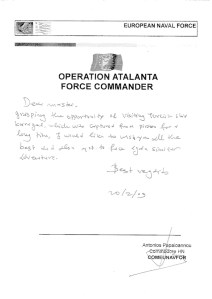 EUROPEAN NAVAL FORCE
OPERATION ATALANTA
FORCE COMMANDER
Dear master,
the opportunity of visiting
which was captured from pirates for a
long time, I would like to wish you all the
best and also not to face again similar
Best regards
Antonios Papaioannou
Commodore HN
COMEUNAVFOR